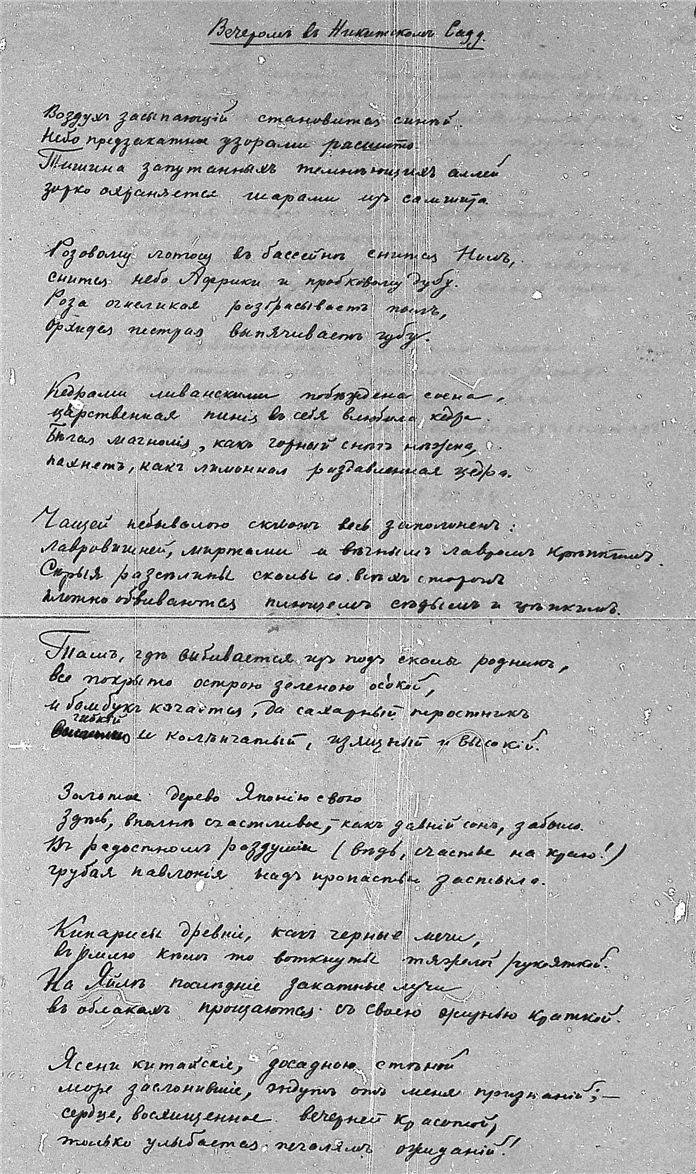 Вечеромъ въ Никитскомъ Саду.
Воздухъ засыпающій становится синѣй.
Небо предзакатное узорами расшито.
Тишина запутанныхъ темнѣющихъ аллей
зорко охраняется шарами изъ самшита.
Розовому лотосу въ бассейнѣ снится Нилъ,
снится небо Африки и пробковому дубу.
Роза огнеликая разбрасываетъ пыль,
Орхидея пестрая выпячиваетъ губу.
Кедрами ливанскими побѣждена сосна,
царственная пинія въ себя влюбила кедра.
Бѣлая магнолія, какъ горный снѣгъ нѣжна,
пахнетъ, какъ лимонная раздавленная цедра.
Чащей небывалою склонъ весь заполоненъ:
лавровишней, миртами и вѣчнымъ лавромъ крѣпкимъ.
Сѣрыя разсѣлины скалы со всѣхъ сторонъ
плотно обвиваются плющемъ сѣдымъ и цѣпкимъ.
Тамъ, гдѣ выбивается изъ подъ скалы родникъ,
все покрыто острою зеленою осокой,
и бамбукъ качается, да сахарный тростникъ
гибкій
и колѣнчатый, изящный и высокій.
Золотое дерево Японію свою
здѣсь, вполнѣ счастливое, какъ давній сонъ, забыло.
Въ радостномъ раздумьи (вѣдь, счастье на краю!)
грубая павлонія надъ пропастью застыла.
Кипарисы древніе, какъ черные мечи,
въ землю кѣмъ то воткнуты тяжелой рукояткой.
На Яйлѣ послѣдніе закатные лучи
въ облакахъ прощаются съ своею жизнью краткой.
Ясени китайскіе, досадною стѣной
море заслонившіе, ждутъ отъ меня признаній;—
сердце, восхищенное вечерней красотой,
только улыбается печалямъ ожиданій!